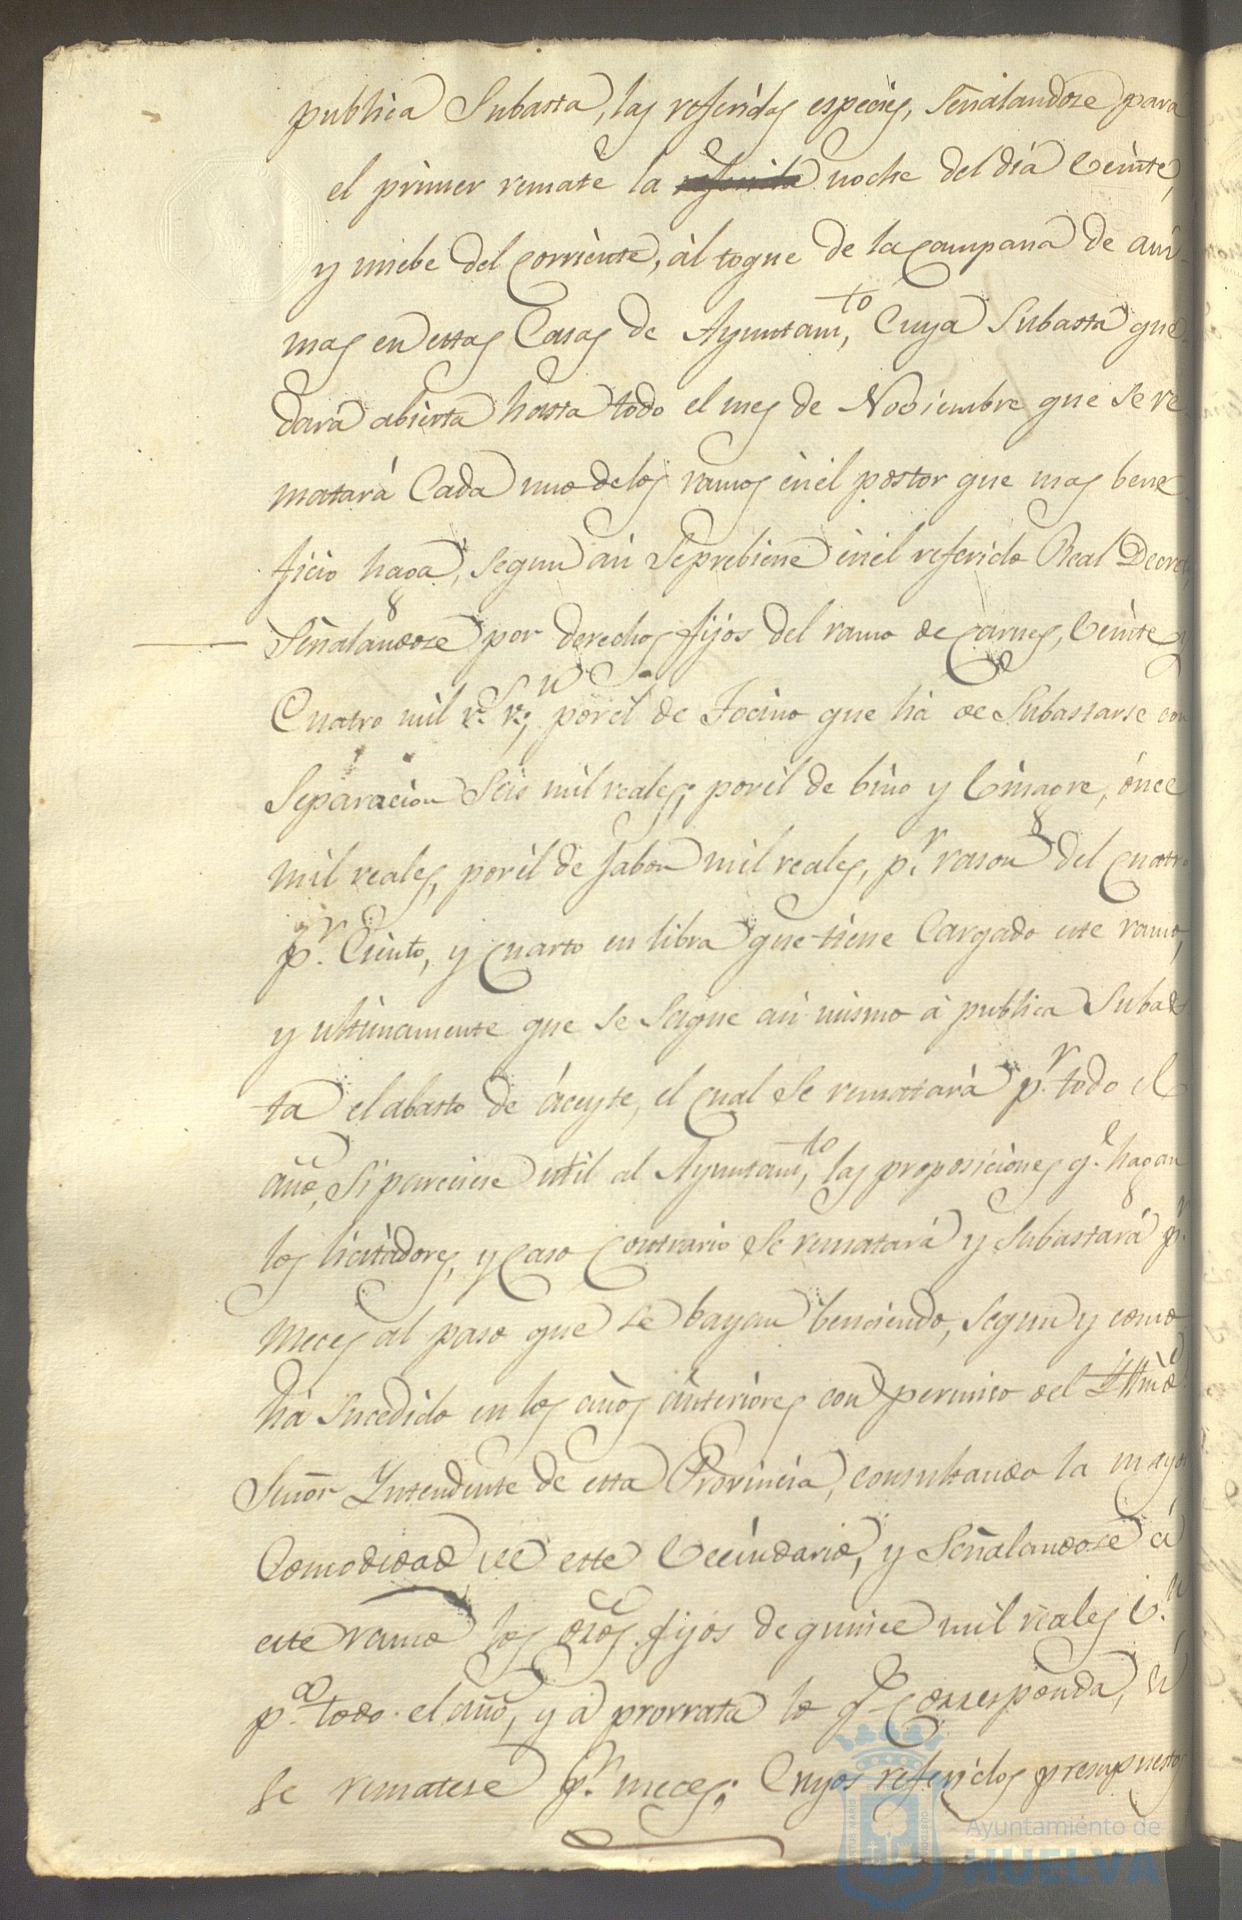 publica Subasta, las referidas especies, Señalandose para
el primer remate la referida noche del dia beinte,
y nuebe del corriente, al toque de la campana de ani-
mas en estas Casas de Ayuntam.to, Cuya Subasta que-
dará abierta hasta todo el mes de Noviembre que se re
matará Cada uno de los ramos en el postor que mas bene
ficio haga, segun asi se prebiene en el referido Real Decreto,
Señalandose por derechos fijos del ramo de carnes, beinte y
Cuatro mil r.s v.n; por el de Tocino que ha de Subastarse con
Separacion Seis mil reales; por el de bino y binagre, once
mil reales, por el de Jabon mil reales, p.r rason del cuatro
p.r Ciento, y cuarto en libra que tiene Cargado este ramo,
y ultimamente que se saque asi mismo á publica Subas
ta el abasto de áceyte, el cual se rematará p.r todo el
año, si pareciese util al Ayuntam.to, las proposiciones q.e hagan
los licitadores, y caso contrario se rematará y subastará p.r
meces al paso que se bayan benciendo, segun y como
ha sucedido en los años ánteriores con permiso del Yllmo
Señor Yntendente de esta Provincia, consultando la mayor
Comodidad de este becindario, y Señalandose á
este ramo los dros fijos de quince mil reales v.n
p.a todo el año, y á prorrata lo q.e corresponda, si
se rematase p.r meces; Cuyos referidos presupuestos
Ayuntamiento de
HUELVA